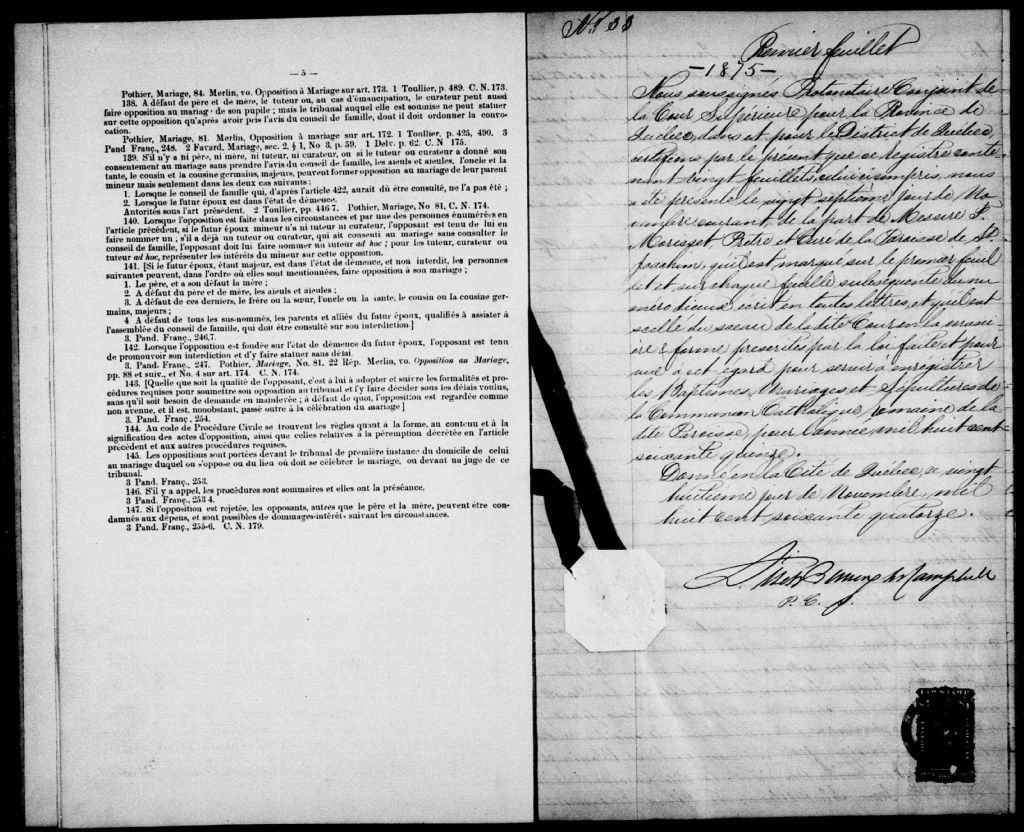 — 5 —
Pothier, Mariage, 84. Merlin, vo. Opposition à Mariage sur art. 173. 1 Toullier, p. 489. C. N. 173.
138. A défaut de père et de mère, le tuteur ou, au cas d'émancipation, le curateur peut aussi
faire opposition au mariage de son pupile ; mais le tribunal auquel elle est soumise ne peut statuer
sur cette opposition qu'après avoir pris l'avis du conseil de famille, dont il doit ordonner la convo-
cation.
Pothier, Mariage, 81. Merlin, Opposition à mariage sur art. 172. 1 Toullier, p. 425, 490. 3
Pand Franç., 248. 2 Favard, Mariage, sec. 2, § 1, No 3, p. 59. 1 Delv. p. 62. C. N 175.
139. S'il n'y a ni père, ni mère, ni tuteur, ni curateur, ou si le tuteur ou curateur a donné son
consentement au mariage sans prendre l'avis du conseil de famille, les aieuls et aieules, l'oncle et la
tante, le cousin et la cousine germains, majeurs, peuvent former opposition au mariage de leur parent
mineur mais seulement dans les deux cas suivants :
1. Lorsque le conseil de famille qui, d'après l'article 422, aurait dû être consulté, ne l'a pas été ;
2. Lorsque le futur époux est dans l'état de démence.
Autorités sous l'art précédent. 2 Toullier, pp. 446 7. Pothier, Mariage, No 81, C. N. 174.
140. Lorsque l'opposition est faite dans les circonstances et par une des personnes énumérées en
l'article précédent, si le futur époux mineur n'a ni tuteur ni curateur, l'opposant est tenu de lui en
faire nommer un ; s'il a déjà un tuteur ou curateur, qui ait consenti au mariage sans consulter le
conseil de famille, l'opposant doit lui faire nommer un tuteur ad hoc ; pour les tuteur, curateur ou
tuteur ad hoc, représenter les intérêts du mineur sur cette opposition.
141. [Si le futur époux, étant majeur, est dans l'état de démence, et non interdit, les personnes
suivantes peuvent, dans l'ordre où elles sont mentionnées, faire opposition à son mariage ;
1. Le père, et a son défaut la mère ;
2. A défaut du père et de mère, les aieuls et aieules ;
3. A défaut de ces derniers, le frère ou la sœur, l'oncle ou la tante, le cousin ou la cousine ger-
mains, majeurs ;
4 A défaut de tous les sus-nommés, les parents et alliés du futur époux, qualifiés à assister à
l'assemblée du conseil de famille, qui doit être consulté sur son interdiction ]
3. Pand. Franç., 246,7.
142. Lorsque l'opposition est fondée sur l'état de démence du futur époux, l'opposant est tenu
de promouvoir son interdiction et d'y faire statuer sans délai.
3. Pand. Franç., 247. Pothier, Mariage, No. 81. 22 Rép. Merlin, vo. Opposition au Mariage,
pp. 88 et suiv., et No. 4 sur art. 174. C. N. 174.
143. [Quelle que soit la qualité de l'opposant, c'est à lui à adopter et suivre les formalités et pro-
cédures requises pour soumettre son opposition au tribunal et l'y faire décider sous les délais voulus,
sans qu'il soit besoin de demande en mainlevée ; à défaut de quoi, l'opposition est regardée comme
non avenue, et il est, nonobstant, passé outre à la célébration du mariage ]
3. Pand. Franç., 254.
144. Au code de Procédure Civile se trouvent les règles quant à la forme, au contenu et à la
signification des actes d'opposition, ainsi que celles relatives à la péremption décrétée en l'article
précédent et aux autres procédures requises.
145. Les oppositions sont portées devant le tribunal de première instance du domicile de celui
au mariage duquel on s'oppose ou du lieu où doit se célébrer le mariage, ou devant un juge de ce
tribunal.
3 Pand. Franç., 253.
146. S'il y a appel, les procédures sont sommaires et elles ont la préséance.
3 Pand. Franç., 253 4.
147. Si l'opposition est rejetée, les opposants, autres que le père et la mère, peuvent être con-
damnés aux dépens, et sont passibles de dommages-intérêts suivant les circonstances.
3 Pand. Franç., 255-6. C. N. 179.
No 33
Premier feuillet
- 1875 -
Nous soussignés Protonotaire Conjoint de
la Cour Supérieure pour la Province de
Québec, dans et pour le District de Québec,
certifions par le présent que ce registre conte
nant vingt feuillets, celui ci compris, nous
a été présenté le vingt septième jour de No
vembre courant de la part de Messire F.
Morisset Prêtre et Curé de la Paroisse de St
Joachim, qu'il est marqué sur le premier feuil
let et sur chaque feuille subséquente du nu
méro d'iceux écrit en toutes lettres, et qu'il est
scellé du sceau de la dite Cour en la maniè
ire & forme prescrites par la loi faite et pour
vue à cet égard pour servir à enregistrer
les Baptêmes, Mariages et Sépultures de
la Communion Catholique, Romaine de la
dite Paroisse, pour l'année mil huit cent
soixante quinze.
Donné en la Cité de Québec ce vingt
huitième jour de Novembre, mil
huit cent soixante quatorze.
Campbell
P. C. S.